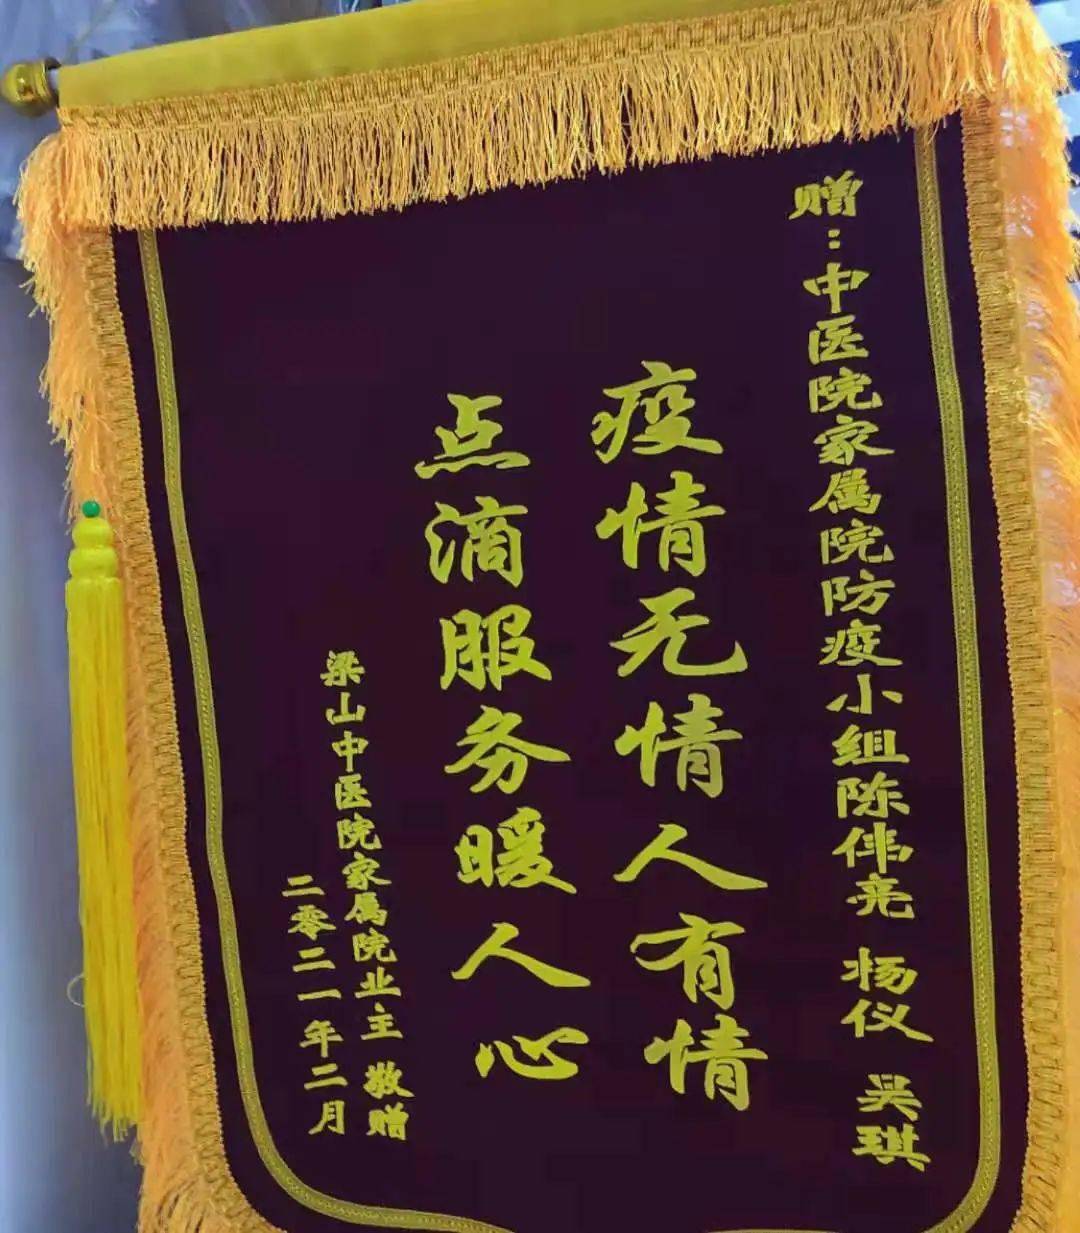 赠：中医院家属院防疫小组陈伟亮 杨仪 吴琪
疫情无情人有情
点滴服务暖人心
梁山中医院家属院业主 敬赠
二零二一年二月